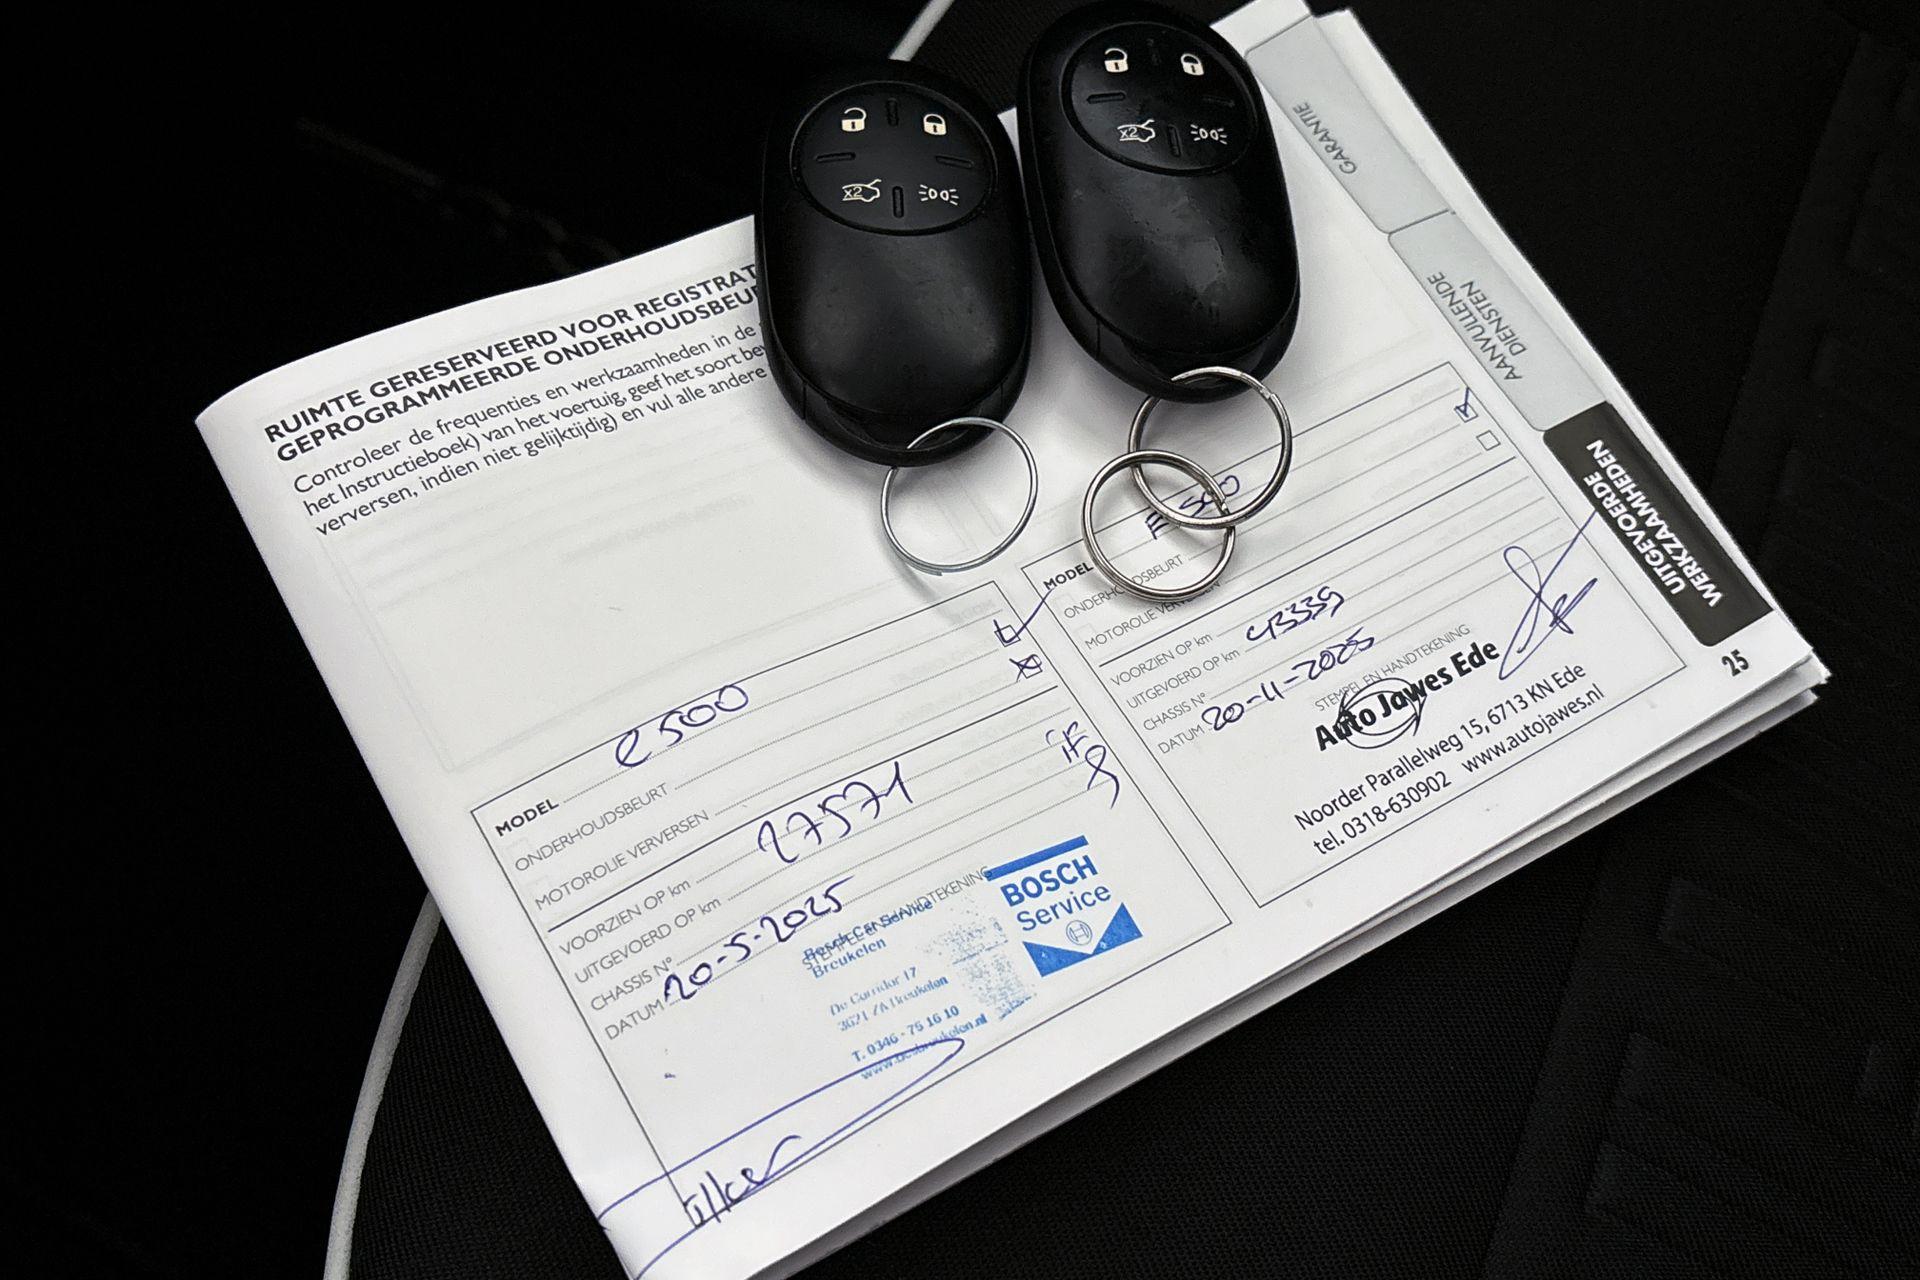 RUIMTE GERESERVEERD VOOR REGISTRAT
GEPROGRAMMEERDE ONDERHOUDSBEU
Controleer de frequenties en werkzaamheden in de
het Instructieboek) van het voertuig, geef het soort
verversen, indien niet gelijktijdig) en vul alle andere
MODEL e500
ONDERHOUDSBEURT
MOTOROLIE VERVERSEN
VOORZIEN OP km
UITGEVOERD OP km 27571
CHASSIS N°
DATUM 20-5-2025
STEMPEL EN HANDTEKENING
Bosch Car Service
Breukelen
De Corridor 17
3621 ZA Breukelen
T. 0346 - 75 16 10
BOSCH
Service
MODEL E 500
ONDERHOUDSBEURT
MOTOROLIE VERVERSEN
VOORZIEN OP km
UITGEVOERD OP km 43339
CHASSIS N°
DATUM 20-11-2025
STEMPEL EN HANDTEKENING
Auto Jawes Ede
Noorder Parallelweg 15, 6713 KN Ede
tel. 0318-630902 www.autojawes.nl
GARANTIE
AANVULLENDE
DIENSTEN
UITGEVOERDE
WERKZAAMHEDEN
25
x2
x2